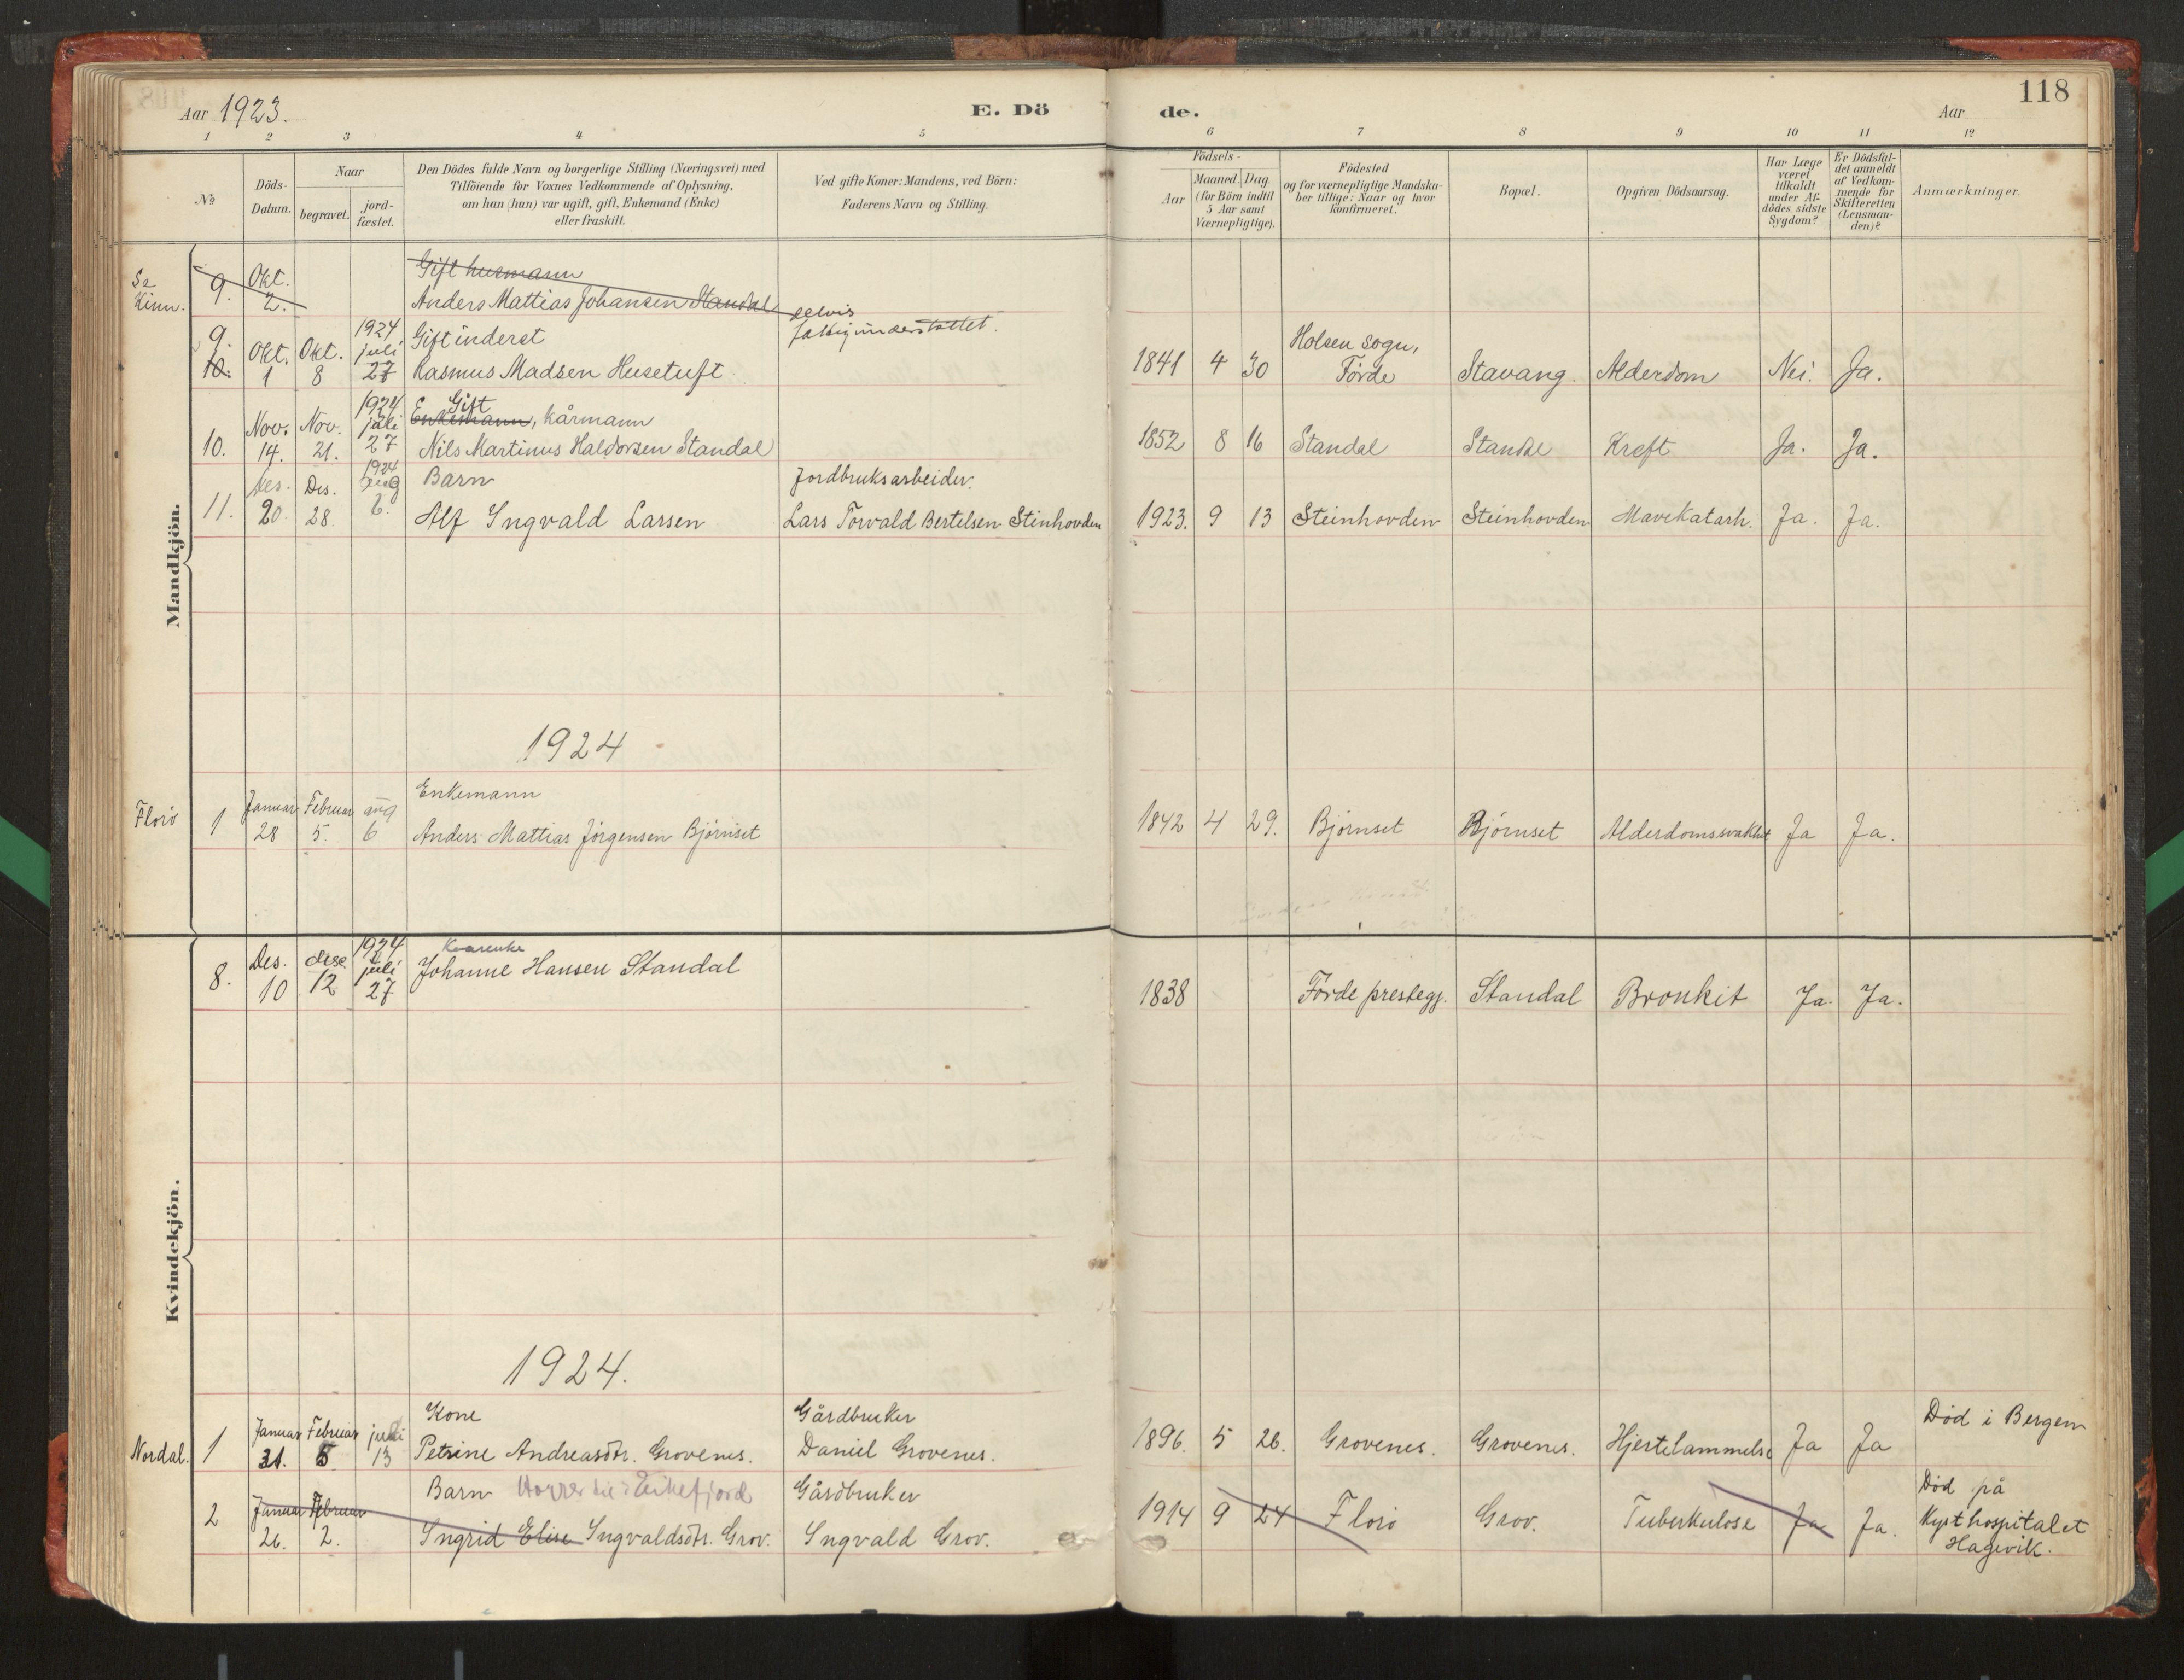 118
Aar 1923.
E. Dö
de.
Aar
1 2 3 4 5
6 7 8 9 10 11 12
No
Döds-
Datum.
Naar
begravet.
jord-
fæstet.
Den Dödes fulde Navn og borgerlige Stilling (Næringsvei) med
Tilföiende for Voxnes Vedkommende af Oplysning,
om han (hun) var ugift, gift, Enkemand (Enke)
eller fraskilt.
Ved gifte Koner: Mandens, ved Börn:
Faderens Navn og Stilling.
Födsels-
Aar
Maaned. Dag.
(for Börn indtil
5 Aar samt
Værnepligtige).
Födested
og for værnepligtige Mandska-
ber tillige: Naar og hvor
konfirmeret.
Bopæl.
Opgiven Dödsaarsag.
Har Læge
været
tilkaldt
under Af-
dödes sidste
Sygdom?
Er Dödsfal-
det anmeldt
af Vedkom-
mende for
Skifteretten
(Lensman-
den)?
Anmærkninger.
Mandkjön.
Se
Kinn.
9. Okt.
2.
Gift husmann
Anders Mattias Johansen Standal
delvis
fattigunderstøttet.
9.
10. Okt.
1
Okt.
8
1924
juli
27
Gift inderst
Rasmus Madsen Husetuft
1841 4 30
Holsen sogn,
Førde
Stavang. Alderdom Nei. Ja.
10. Nov.
14.
Nov.
21.
1924
juli
27
Gift
Enkemann, kårmann
Nils Martinus Haldorsen Standal
1852 8 16 Standal Standal Kreft Ja. Ja.
11. Des.
20.
Des.
28.
1924
aug
6.
Barn
Alf Ingvald Larsen
Jordbruksarbeider.
Lars Torvald Bertelsen Steinhovden
1923. 9 13 Steinhovden Steinhovden Mavekatarh. Ja. Ja.
1924
Florø
1 Januar
28
Februar
5.
aug
6
Enkemann
Anders Mattias Jörgensen Björnset
1842 4 29. Björnset Björnset Alderdomssvakhet Ja Ja.
Kvindekjön.
8. Des.
10
dese
12
1924
juli
27
Kårenke
Johanne Hansen Standal
1838 Førde prestegj. Standal Bronkit Ja. Ja.
1924.
Nordal.
1 Januar
31.
Februar
5
juli
13
Kone
Petrine Andreasdtr. Grovenes.
Gårdbruker
Daniel Grovenes.
1896. 5 26. Grovenes. Grovenes. Hjertelammelse Ja Ja
Död i Bergen
2 Januar
26.
Februar
2.
Barn
Ingrid Elise Ingvaldsdtr. Grov.
Gårdbruker
Ingvald Grov.
1914 9 24 Florö Grov. Tuberkulose Ja Ja.
Död på
Kysthospitalet
Hagevik.